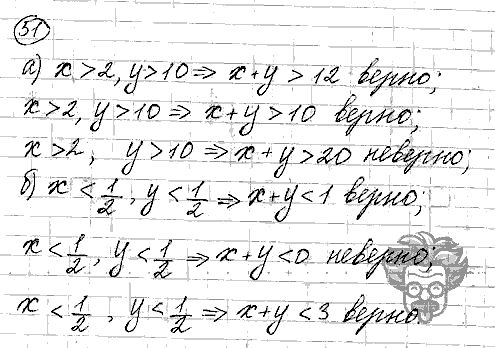 51
а) x > 2, y > 10 ⇒ x + y > 12 верно;
x > 2, y > 10 ⇒ x + y > 10 верно;
x > 2, y > 10 ⇒ x + y > 20 неверно;
б) x < 1/2, y < 1/2 ⇒ x + y < 1 верно;
x < 1/2, y < 1/2 ⇒ x + y < 0 неверно;
x < 1/2, y < 1/2 ⇒ x + y < 3 верно.